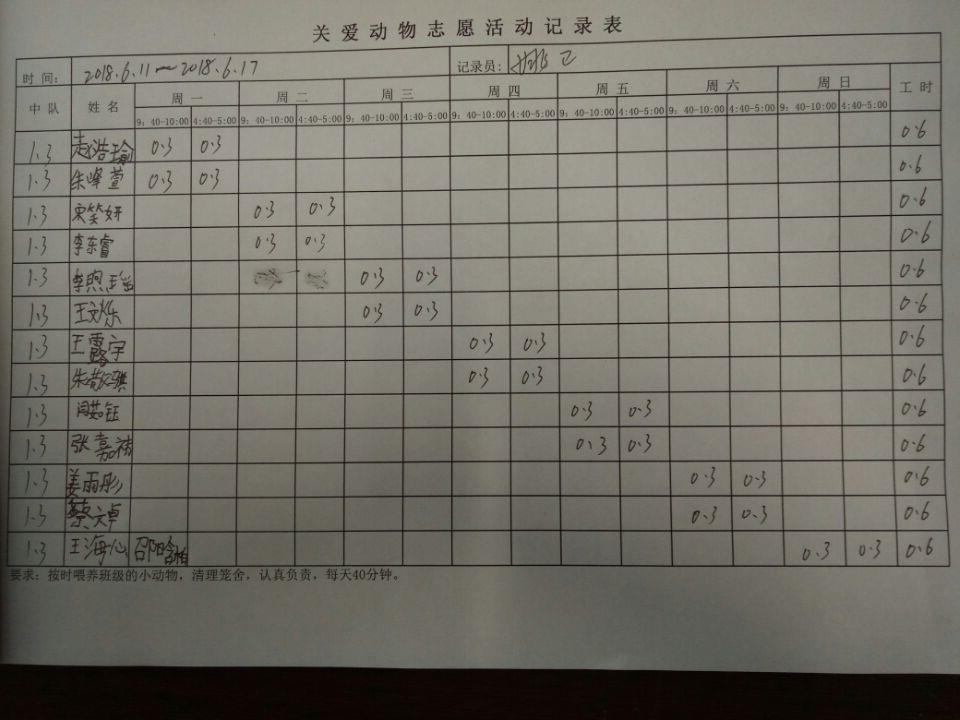 关爱动物志愿活动记录表
时间: 2018.6.11—2018.6.17 记录员:
中队 姓名 周一 周二 周三 周四 周五 周六 周日 工时
9：40-10:00 4:40-5:00 9：40-10:00 4:40-5:00 9：40-10:00 4:40-5:00 9：40-10:00 4:40-5:00 9：40-10:00 4:40-5:00 9：40-10:00 4:40-5:00 9：40-10:00 4:40-5:00
1.3 赵浩瑜 0.3 0.3 0.6
1.3 朱峰萱 0.3 0.3 0.6
1.3 宋笑妍 0.3 0.3 0.6
1.3 李东睿 0.3 0.3 0.6
1.3 李煦瑶 0.3 0.3 0.6
1.3 王文烁 0.3 0.3 0.6
1.3 王露宇 0.3 0.3 0.6
1.3 朱敬骐 0.3 0.3 0.6
1.3 周茹钰 0.3 0.3 0.6
1.3 张嘉祐 0.3 0.3 0.6
1.3 姜雨彤 0.3 0.3 0.6
1.3 蔡文卓 0.3 0.3 0.6
1.3 王海心 邵晗柏 0.3 0.3 0.6
要求：按时喂养班级的小动物，清理笼舍，认真负责，每天40分钟。